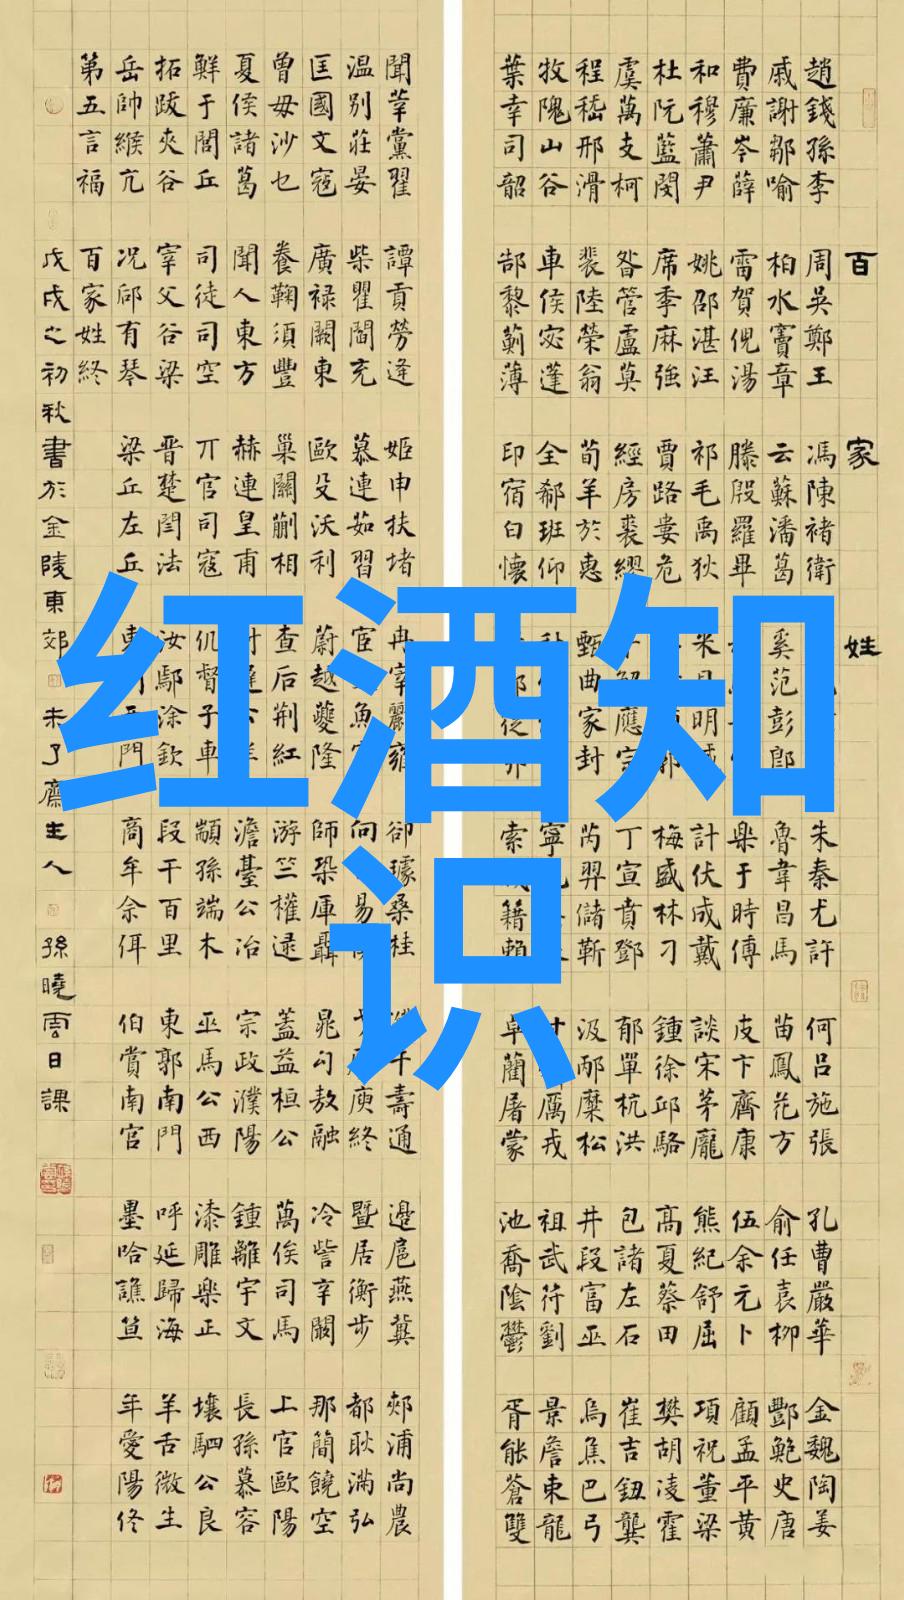 百家姓
趙錢孫李 周吳鄭王 馮陳褚衛 朱秦尤許 何呂施張 孔曹嚴華 金魏陶姜
戚謝鄒喻 柏水竇章 云蘇潘葛 奚范彭郎 魯韋昌馬 苗鳳花方 俞任袁柳 酆鮑史唐
費廉岑薛 雷賀倪湯 滕殷羅畢 樂于時傅 皮卞齊康 伍余元卜 顧孟平黃
和穆蕭尹 姚邵湛汪 祁毛禹狄 米貝明 計伏成戴 談宋茅龐 熊紀舒屈 項祝董梁
杜阮藍閔 席季麻強 賈路婁危 梅盛林刁 鍾徐邱駱 高夏蔡田 樊胡凌霍
虞萬支柯 昝管盧莫 經房裘繆 解應宗 丁宣賁鄧 郁單杭洪 包諸左石 崔吉鈕龔
程嵇邢滑 裴陸榮翁 荀羊於惠 甄曲家封 芮羿儲靳 汲邴糜松 井段富巫 烏焦巴弓
牧隗山谷 車侯宓蓬 全郗班仰 寧 厲戎 祖武符劉 景詹束龍
葉幸司韶 郜黎薊薄 印宿白懷 索籍賴 卓藺屠蒙 池喬陰鬱 胥能蒼雙
聞莘黨翟 譚貢勞逄 姬申扶堵 冉宰酈雍 卻璩桑桂 壽通 邊扈燕冀 郟浦尚農
温別莊晏 柴瞿閻充 慕連茹習 宦魚 向易 庾終 暨居衡步 都耿滿弘
匡國文寇 廣祿闕東 歐殳沃利 蔚越夔隆 師鞏厙聶 晁勾敖融 冷訾辛闞 那簡饒空
曾毋沙乜 養鞠須豐 巢關蒯相 查后荆紅 游竺權逯 蓋益桓公 萬俟司馬 上官歐陽
夏侯諸葛 聞人東方 赫連皇甫 尉遲公羊 澹臺公冶 宗政濮陽 鍾離宇文 長孫慕容
鮮于閭丘 司徒司空 丌官司寇 仉督子車 顓孫端木 巫馬公西 漆雕樂正 壤駟公良
拓跋夾谷 宰父谷梁 晉楚閆法 汝鄢涂欽 段干百里 東郭南門 呼延歸海 羊舌微生
岳帥緱亢 况郈有琴 梁丘左丘 東門 商牟佘佴 伯賞南宫 墨哈譙笪 年愛陽佟
第五言福 百家姓終
戊戌之初秋書於金陵東郊未了齋主人 孫曉雲日課
红酒知
识